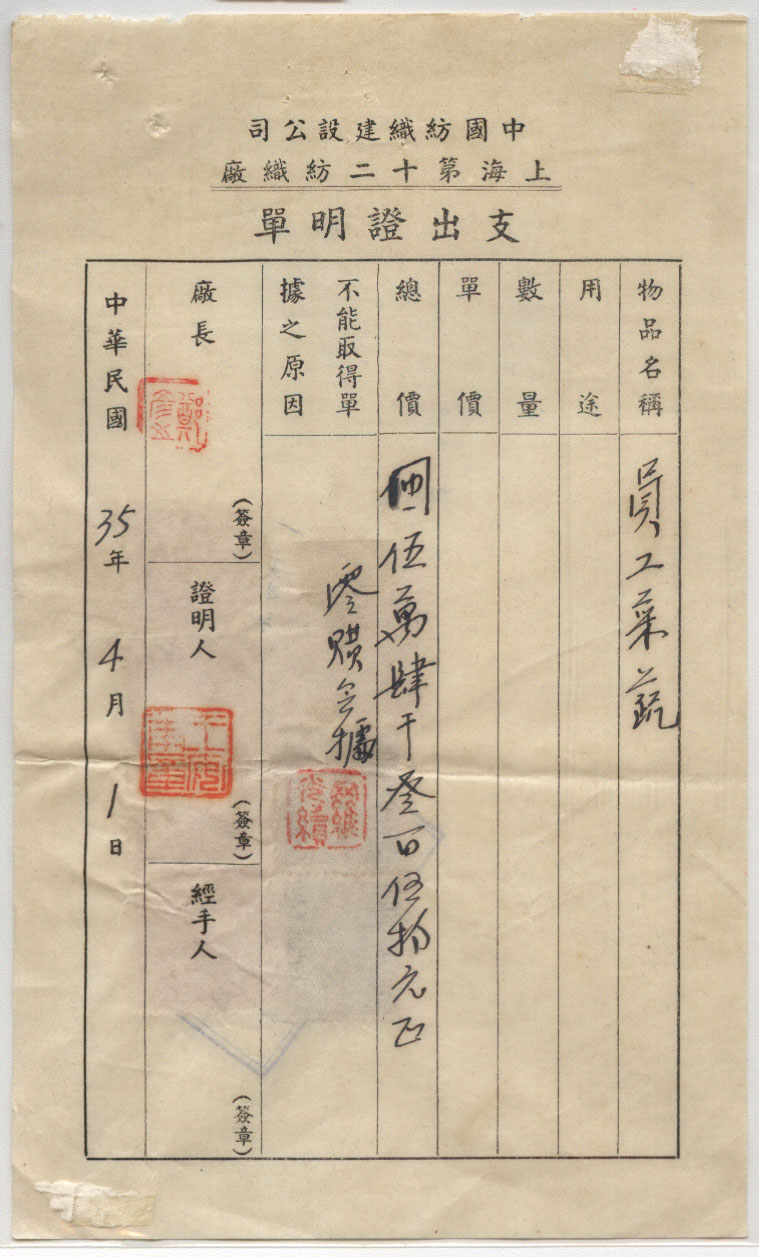 中國紡織建設公司
上海第十二紡織廠
支出證明單
物品名稱
員工菜蔬
用途
數量
單價
總價
國幣伍萬肆千叁百伍拾元正
不能取得單
據之原因
零購無據
廠長
(簽章)
證明人
(簽章)
經手人
(簽章)
中華民國35年4月1日